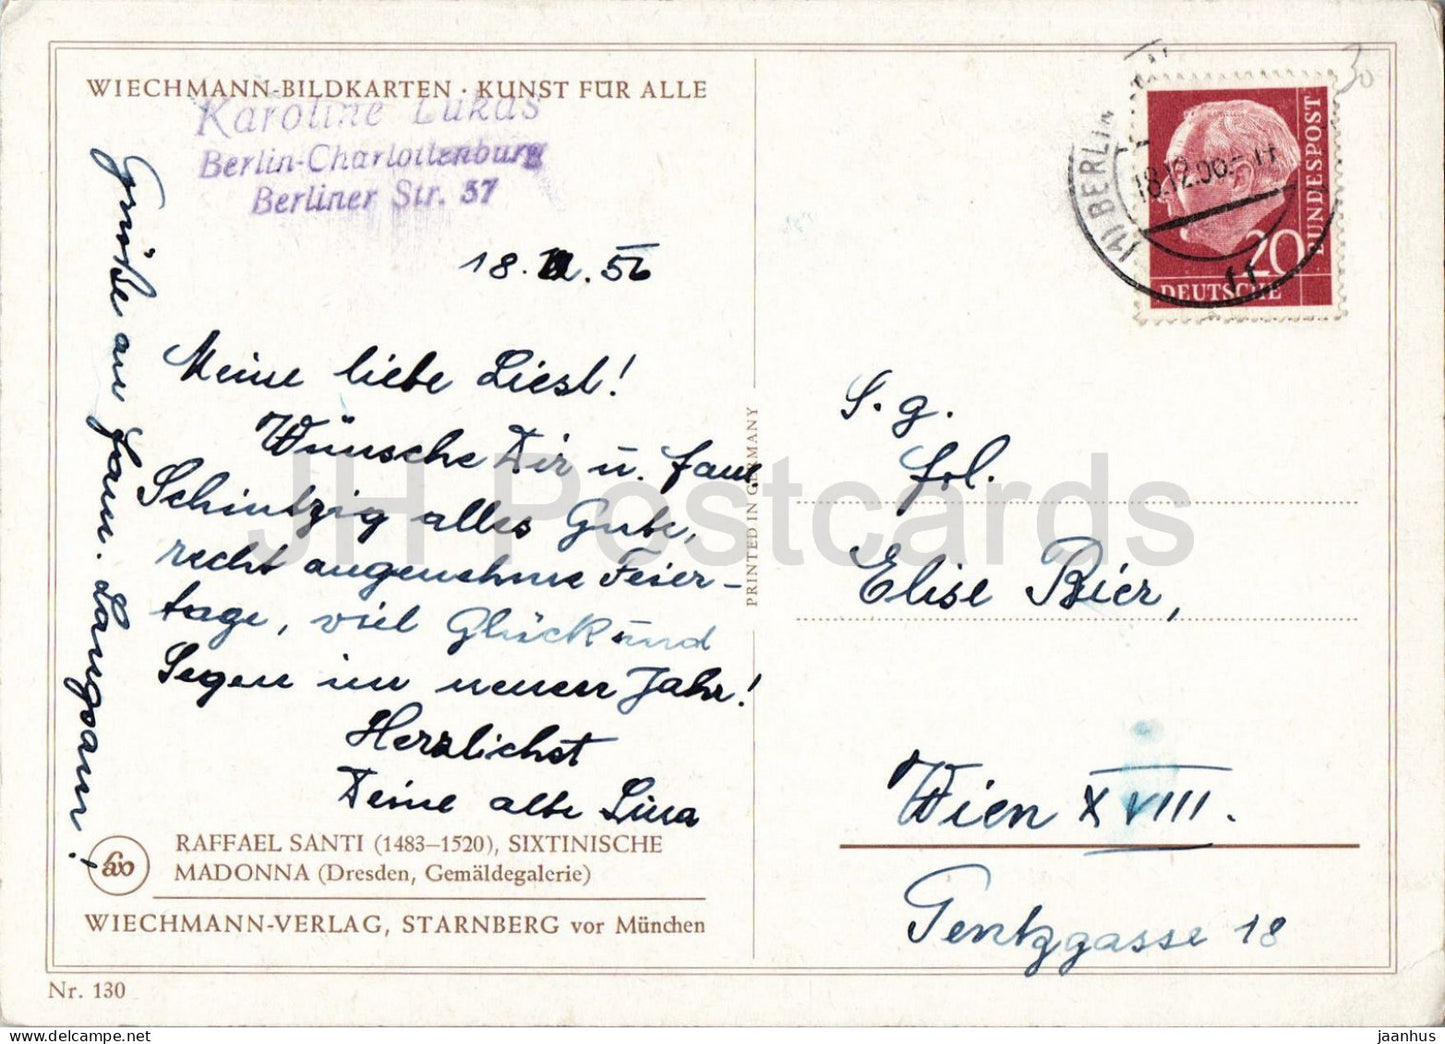 WIECHMANN-BILDKARTEN · KUNST FÜR ALLE
Karoline Lukas
Berlin-Charlottenburg
Berliner Str. 37
18. 12. 56
Meine liebe Liesl!
Wünsche Dir u. Fam.
Schintzig alles Gute,
recht angenehme Feier-
tage, viel Glück und
Segen im neuen Jahr!
Herzlichst
Deine alte Lina
Grüße an Fam. Langsam!
RAFFAEL SANTI (1483–1520), SIXTINISCHE
MADONNA (Dresden, Gemäldegalerie)
WIECHMANN-VERLAG, STARNBERG vor München
Nr. 130
PRINTED IN GERMANY
30
(1) BERLIN
18.12.56.-11
DEUTSCHE
BUNDESPOST
20
S. g.
Frl.
Elise Bier,
Wien XVIII.
Gentzgasse 18
JH Postcards
delcampe.net
jaanhus